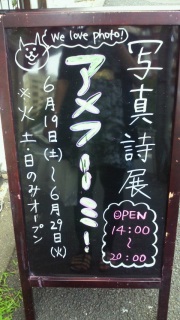 We love photo!
写真詩展
アメフルーミー!
6月19日(土)~6月29日(火)
※火 土 日のみオープン
OPEN
14:00
~
20:00